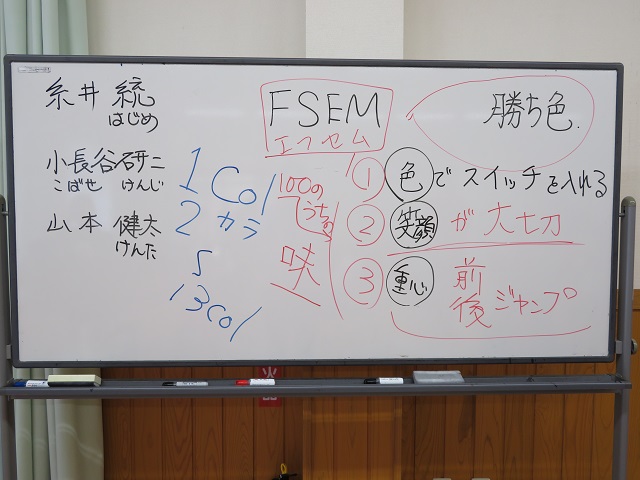 糸井 統
はじめ
小長谷研二
こばせ けんじ
山本 健太
けんた
1 Col
2 カラ
5
13col
FSEM
エフセム
100の
うちの
味
勝ち色.
① 色でスイッチを入れる
② 笑顔が大切
③ 重心 前後ジャンプ
火